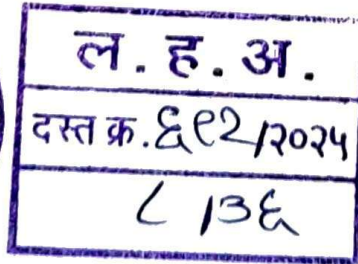 ल. ह. अ.
दस्त क्र. ६९२/२०२५
८ /३६